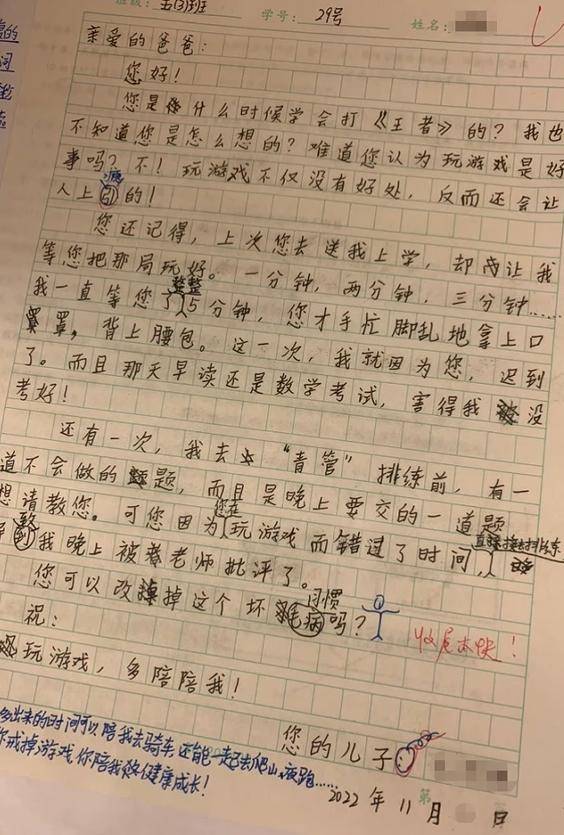 班级：五(3)班 学号：29号 姓名：
亲爱的爸爸：
您好！
您是什么时候学会打《王者》的？我也
不知道您是怎么想的？难道您认为玩游戏是好
事吗？不！玩游戏不仅没有好处，反而还会让
人上瘾的！
您还记得，上次您去送我上学，却让我
等您把那局玩好。一分钟，两分钟，三分钟……
我一直等您了整整15分钟，您才手忙脚乱地拿上口
罩，背上腰包。这一次，我就因为您，迟到
了。而且那天早读还是数学考试，害得我没
考好！
还有一次，我去"青管"排练前，有一
道不会做的题，而且是晚上要交的一道题
想请教您。可您因为您在玩游戏而错过了时间
我晚上被老师批评了。
您可以改掉这个坏习惯吗？
收尾太快！
祝：
玩游戏，多陪陪我！
多出来的时间可以陪我去骑车还能一起去爬山、夜跑……
你戒掉游戏，你陪我健康成长！
您的儿子：
2022年11月 日